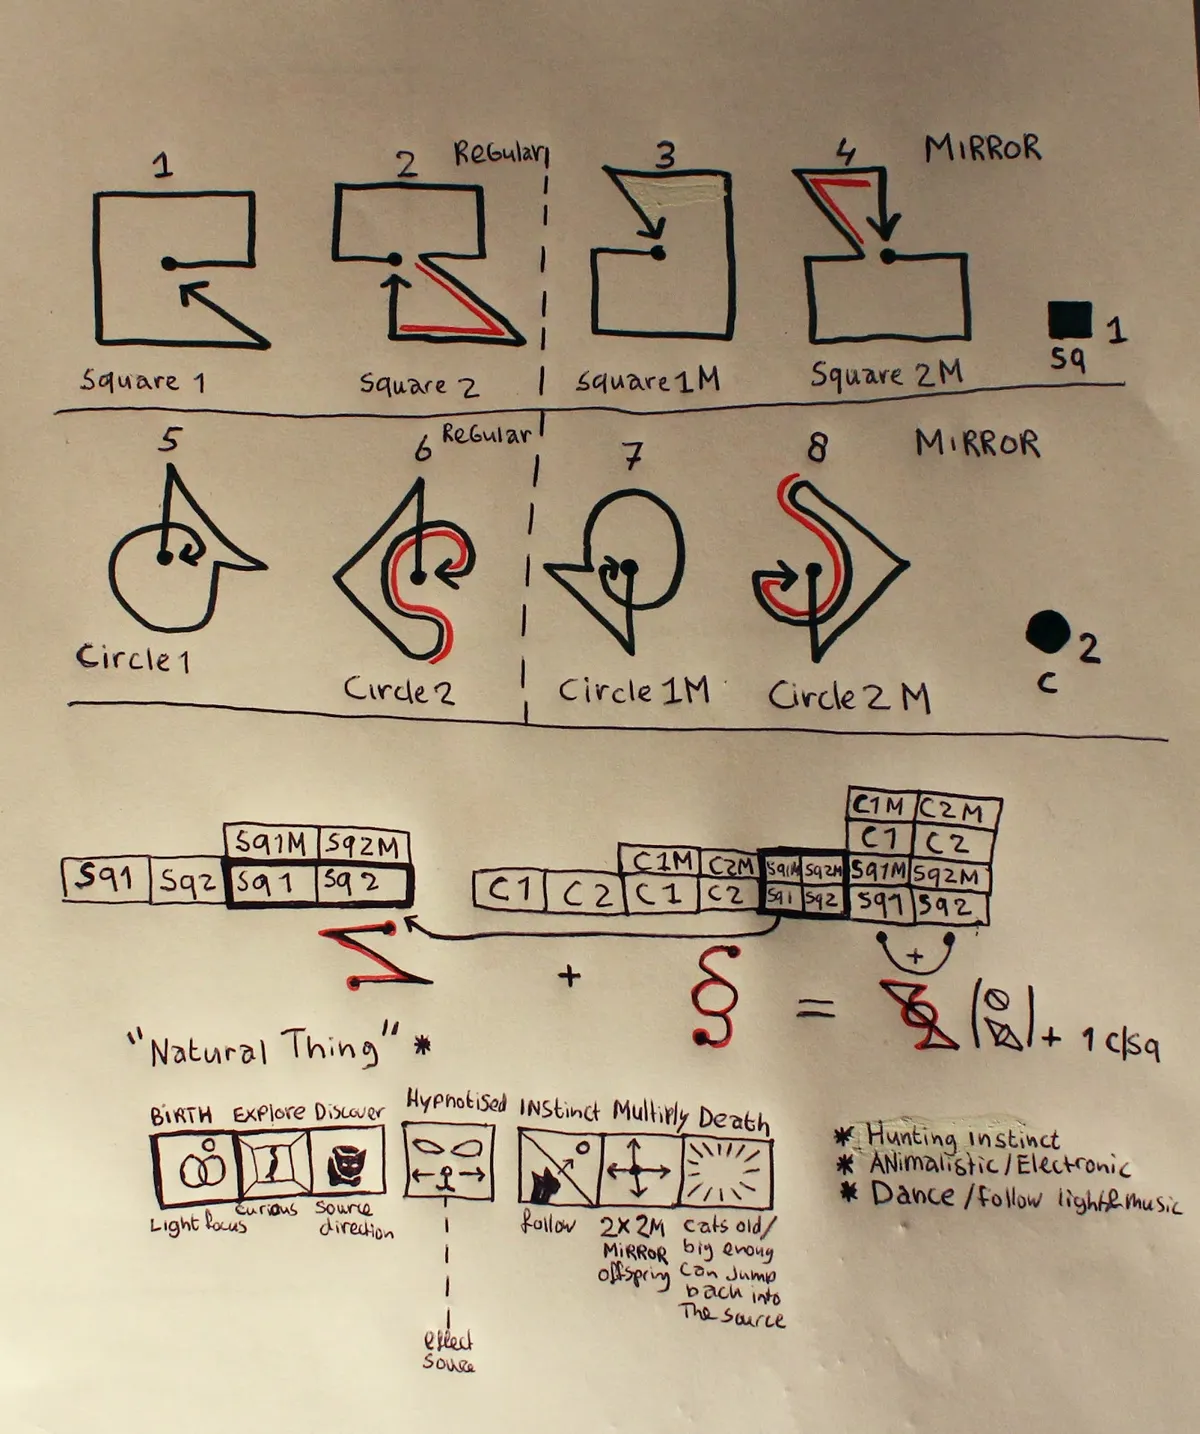 1
2
Regular
3
4
MIRROR
Square 1
Square 2
Square 1M
Square 2M
1
Sq
5
6
Regular
7
8
MIRROR
Circle 1
Circle 2
Circle 1M
Circle 2 M
2
C
Sq1M Sq2M
Sq1 Sq2 Sq1 Sq2
C1M C2M
C1 C2
C1M C2M Sq1M Sq2M Sq1M Sq2M
C1 C2 C1 C2 Sq1 Sq2 Sq1 Sq2
+
+
=
+ 1 c/sq
"Natural Thing" *
BIRTH Explore Discover
Hypnotised
INstinct Multiply Death
Light focus
curious
Source
direction
follow
2X 2M
MiRROR
offspring
cats old/
big enoug
can jump
back into
The source
effect
source
* Hunting instinct
* ANimalistic/Electronic
* Dance/follow light&music